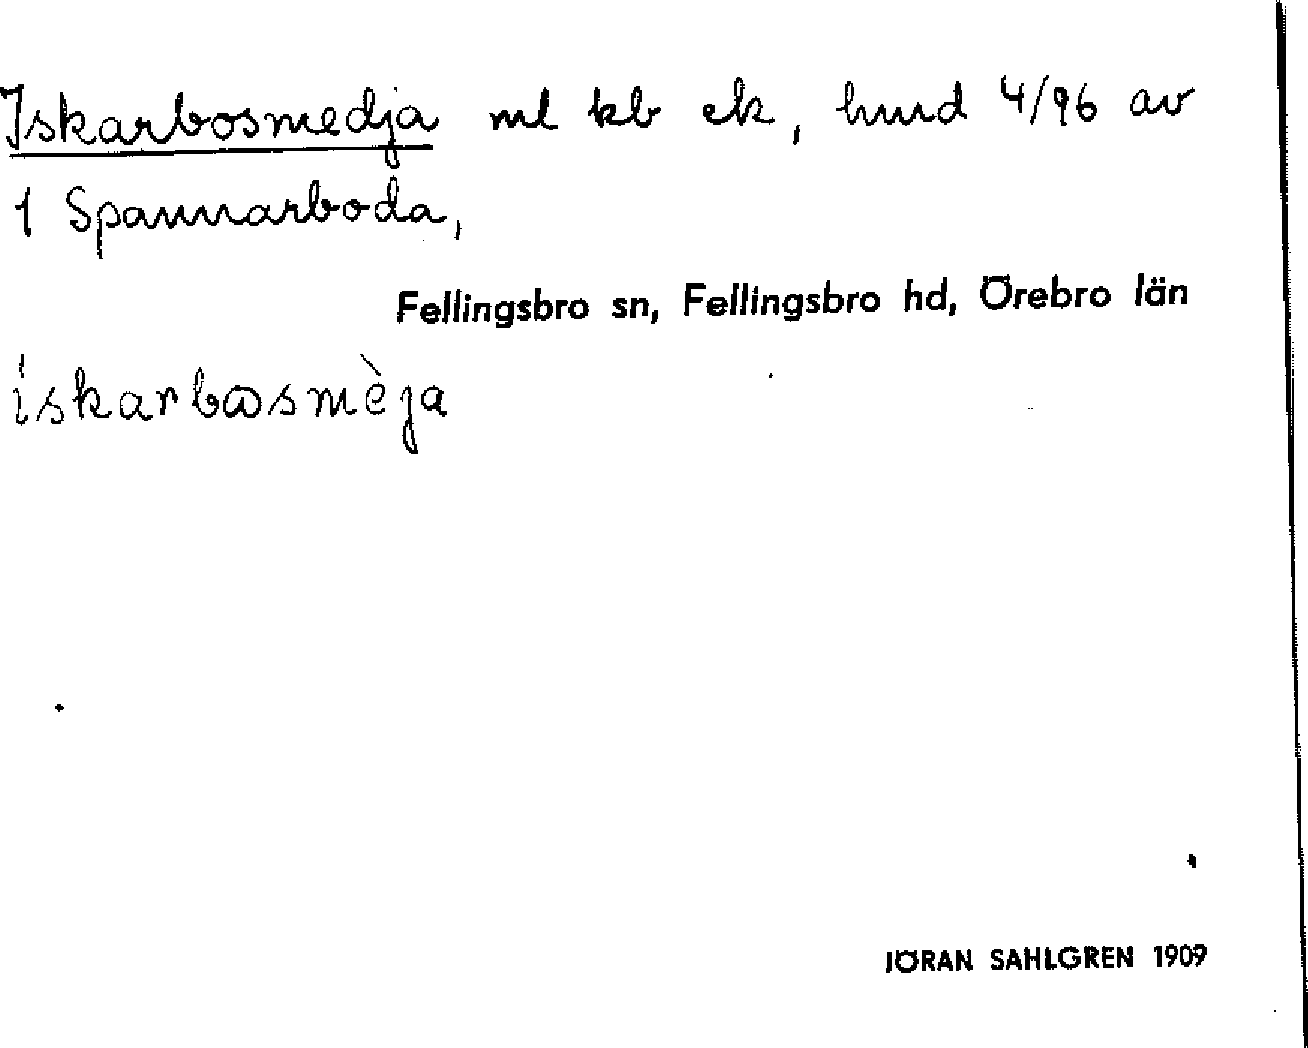 Iskarbosmedja ml kb ek, hmd 4/96 av
1 Spannarboda,
Fellingsbro sn, Fellingsbro hd, Örebro län
ískarbωsmèja
JÖRAN SAHLGREN 1909